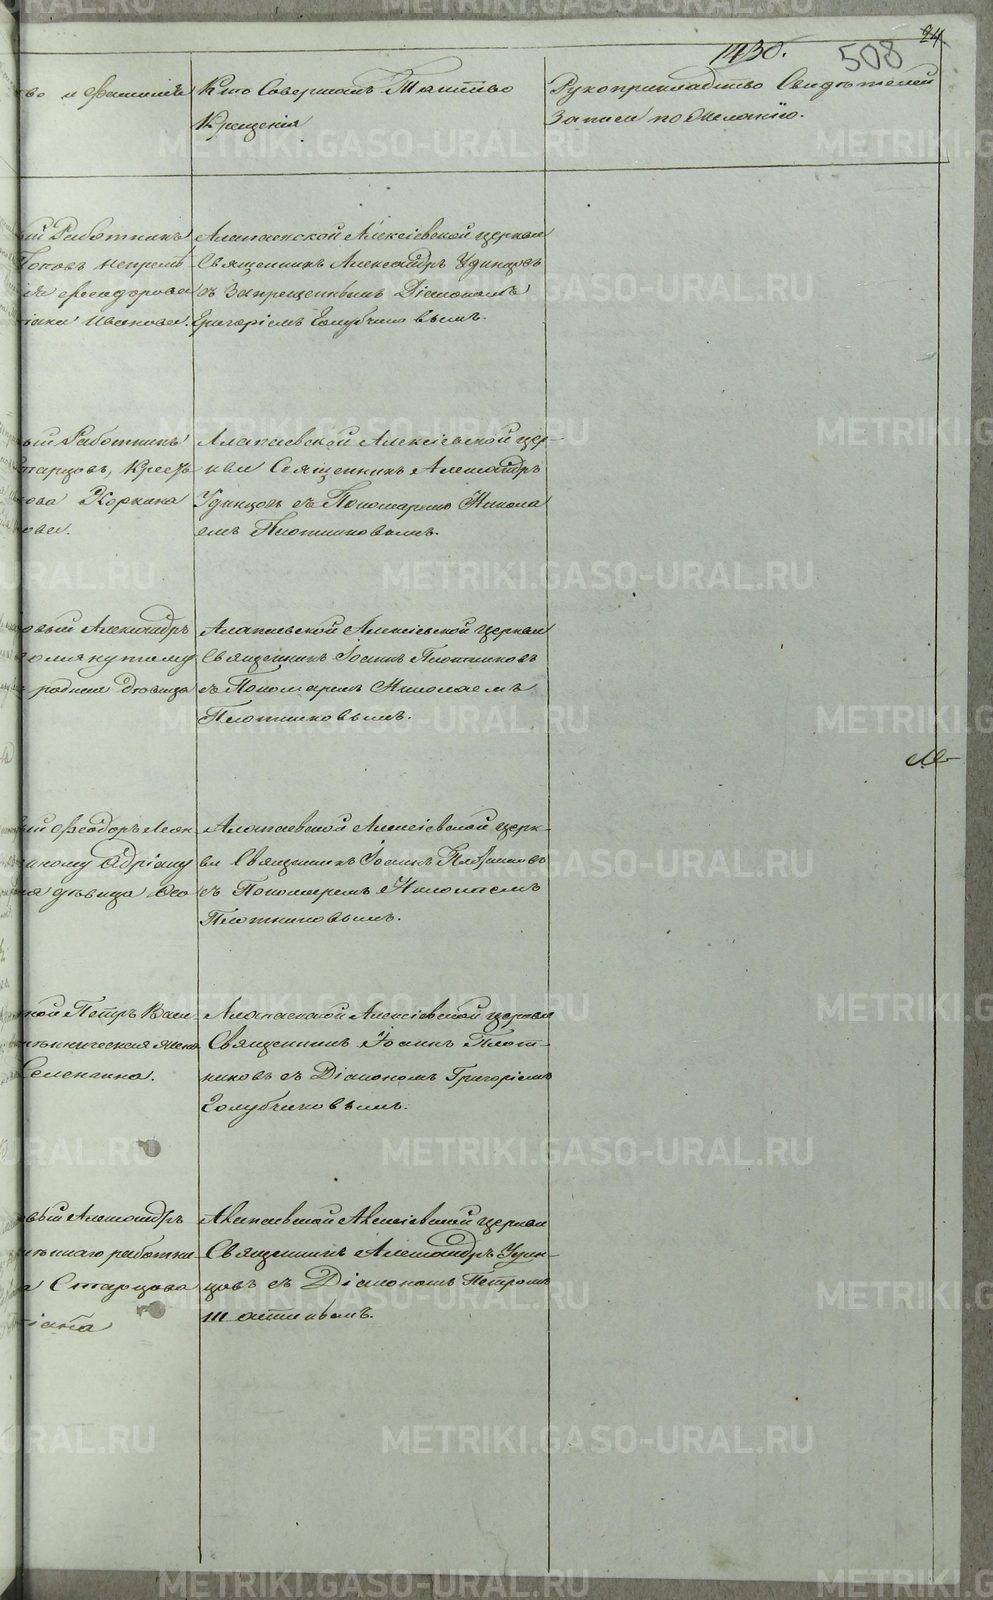 24.
1430.
508
во и Фамилiя
Кто Совершалъ Таинство
Крещенiя
Рукоприкладство Свидѣтелей
Записи по желанiю.
ый Работникъ
непремѣ
Феодорова
Иванова.
Алапаевской Алексiевской церкви
Священникъ Александръ Удинцовъ
съ Запрещеннымъ Дiакономъ
Григорiемъ Голубчиковымъ.
ый Работникъ
тарцовъ, Крест
ова Коркина
ова.
Алапаевской Алексiевской цер-
кви Священникъ Александръ
Удинцовъ съ Пономаремъ Никола
емъ Плотниковымъ.
овый Александръ
родная дѣвица
Алапаевской Алексiевской церкви
Священникъ Iоаннъ Плотниковъ
съ Пономаремъ Николаемъ
Плотниковымъ.
ый Феодоръ Леон
ному Адрiану
на дѣвица
Алапаевской Алексiевской церк-
ви Священникъ Iоаннъ Плотниковъ
съ Пономаремъ Николаемъ
Плотниковымъ.
ной Петръ Васи
Селенгина.
Алапаевской Алексiевской церкви
Священникъ Iоаннъ Плот-
никовъ съ Дiакономъ Григорiемъ
Голубчиковымъ.
овый Александръ
ннаго работни
а Старцова
Алапаевской Алексiевской церкви
Священникъ Александръ Удин-
цовъ съ Дiакономъ Петромъ
METRIKI.GASO-URAL.RU